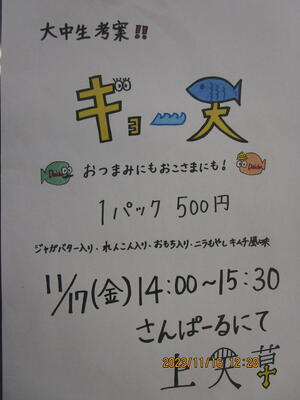 大中生考案!!
ギョー天
おつまみにもおこさまにも!
1パック 500円
ジャガバター入り、れんこん入り、おもち入り、ニラもやしキムチ風味
11/17(金) 14:00〜15:30
さんぱーるにて
上天草
2023/11/16 12:28